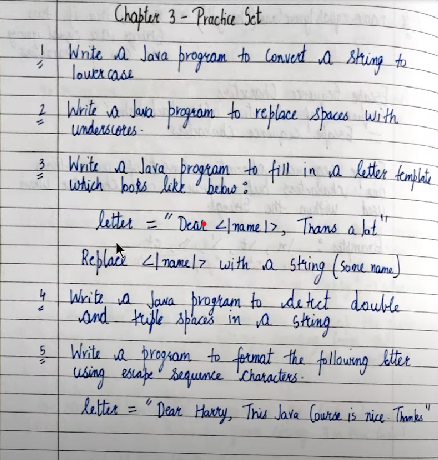 Chapter 3 - Practice Set
1 Write a Java program to Convert a string to
lowercase
2 Write a Java program to replace spaces with
underscores.
3 Write a Java program to fill in a letter template
which looks like below :
letter = "Dear <|name|>, Thans a lot"
Replace <|name|> with a string (some name)
4 Write a Java program to detect double
and triple spaces in a string
5 Write a program to format the following letter
using escape sequence characters.
letter = "Dear Harry, This Java Course is nice Thanks"